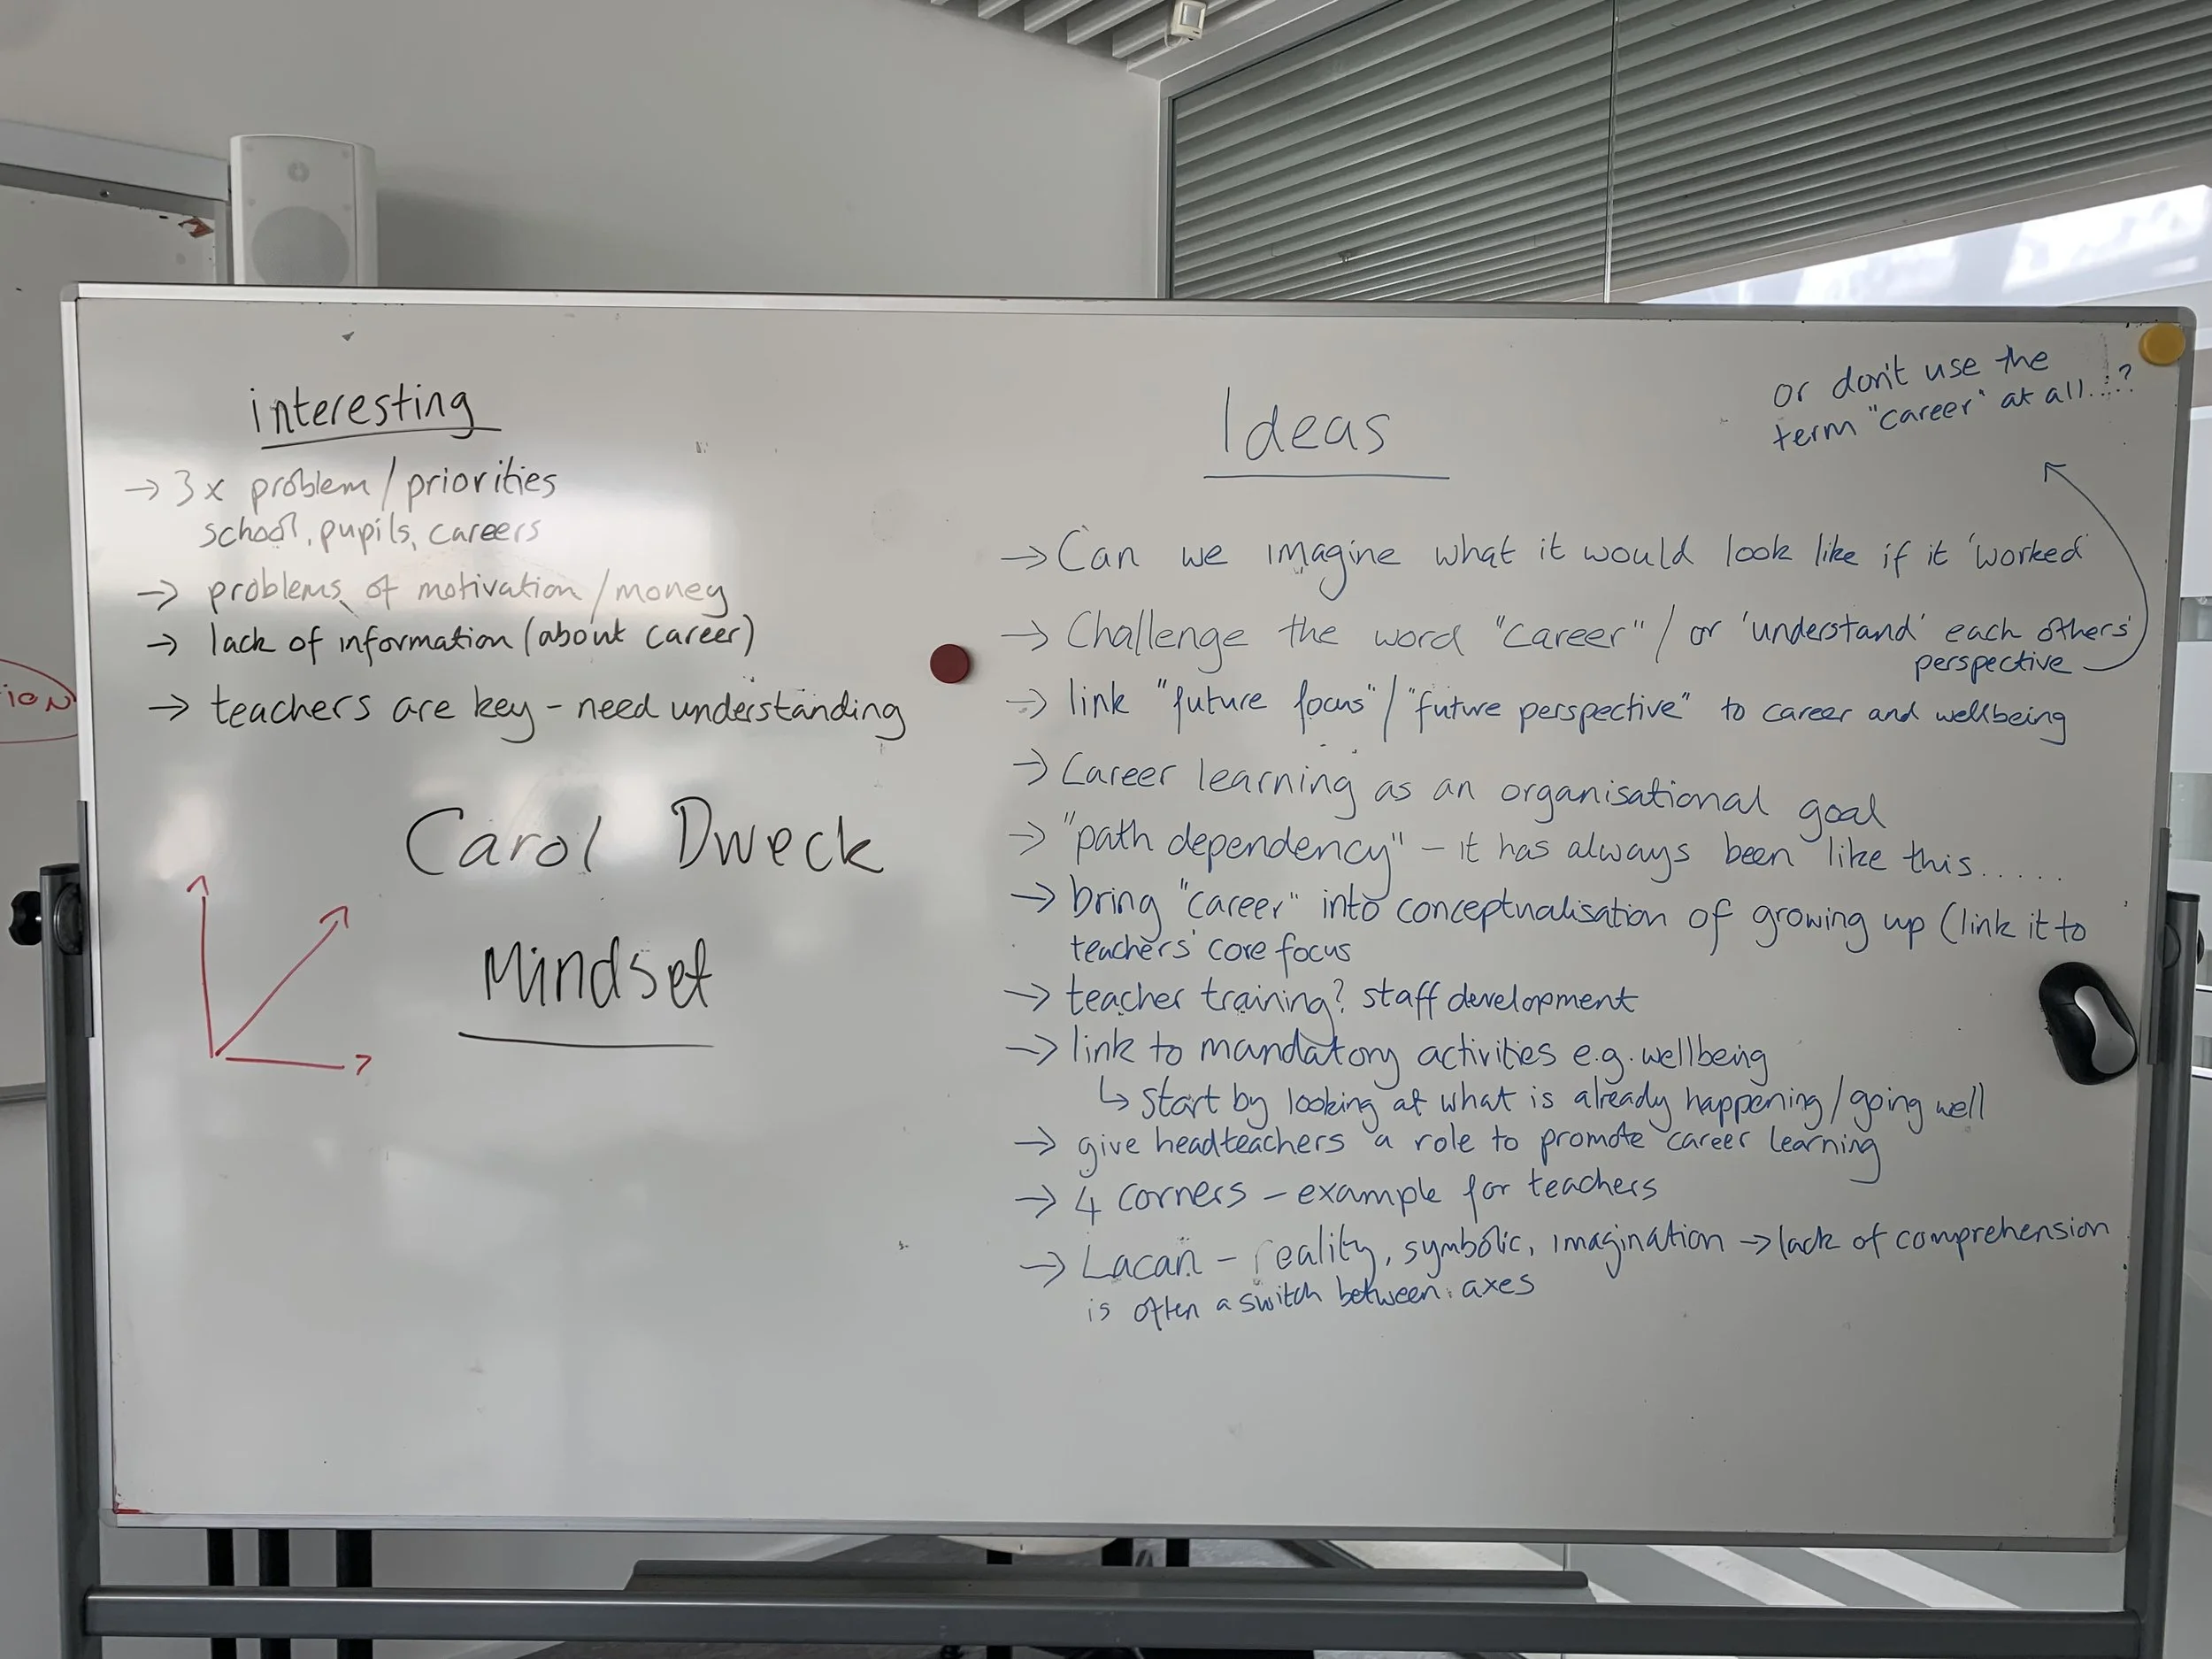 interesting
→ 3x problem/priorities
school, pupils, careers
→ problems of motivation/money
→ lack of information (about career)
→ teachers are key - need understanding
Carol Dweck
Mindset
Ideas
or don't use the
term "career" at all....?
→ Can we imagine what it would look like if it 'worked'
→ Challenge the word "career" / or 'understand' each others'
perspective
→ link "future focus"/"future perspective" to career and wellbeing
→ Career learning as an organisational goal
→ "path dependency" - it has always been like this.....
→ bring "career" into conceptualisation of growing up (link it to
teachers' core focus
→ teacher training? staff development
→ link to mandatory activities e.g. wellbeing
↳ start by looking at what is already happening/going well
→ give headteachers a role to promote career learning
→ 4 corners - example for teachers
→ Lacan - reality, symbolic, imagination → lack of comprehension
is often a switch between axes
ION